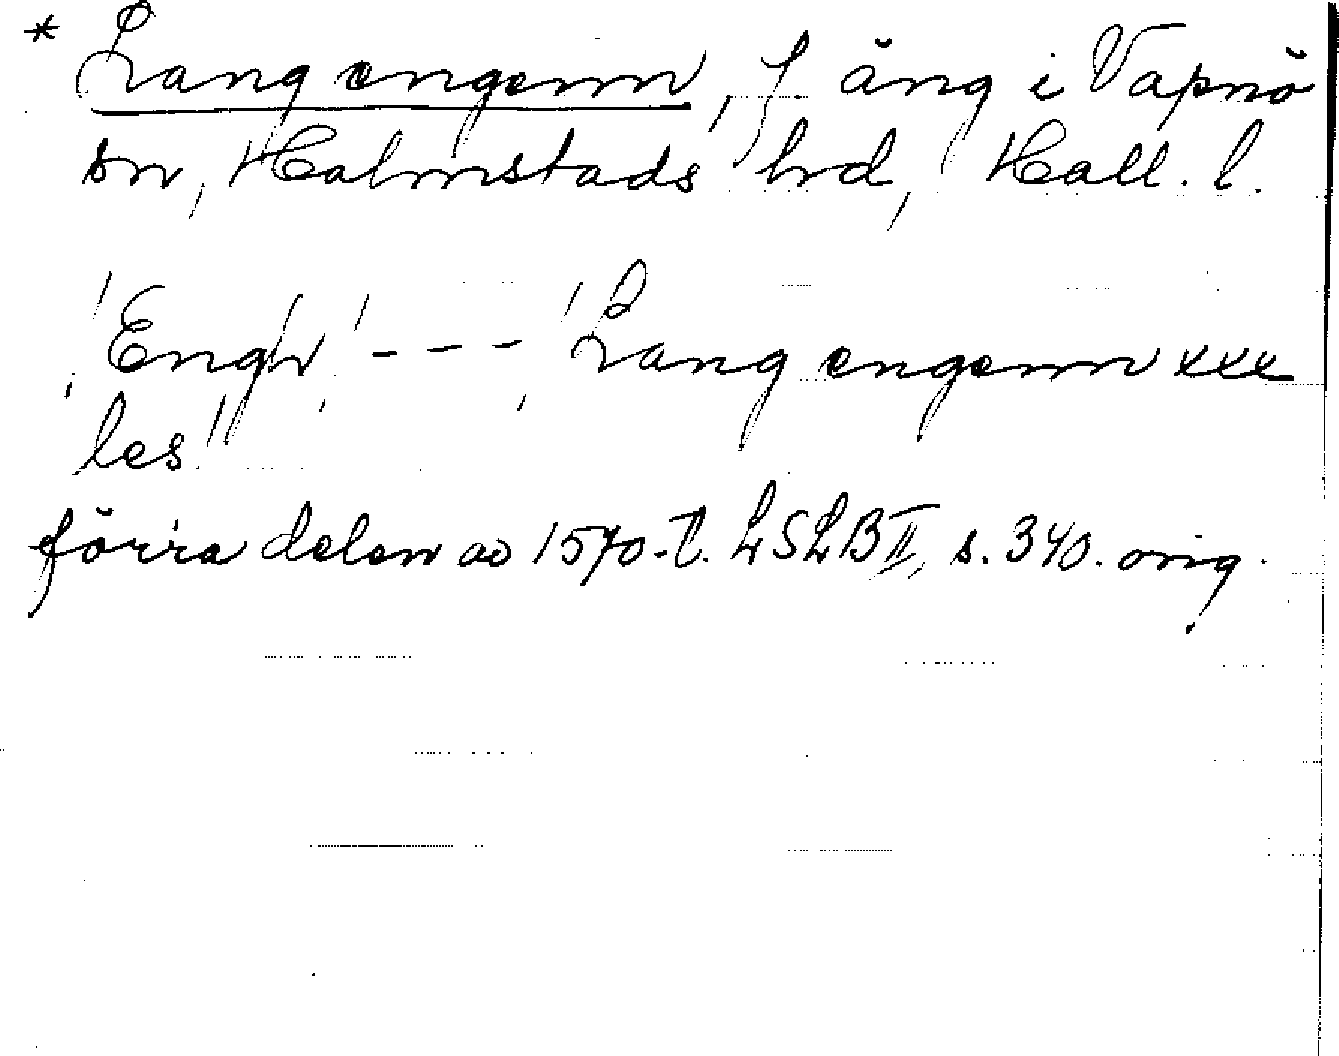 * Lang engenn, f äng i Vapnö
sn, Halmstads hrd, Hall. l.
"Engh" - - - "Lang engenn xxx
les"
förra delen av 1570-t. LSLB II, s. 340. orig.